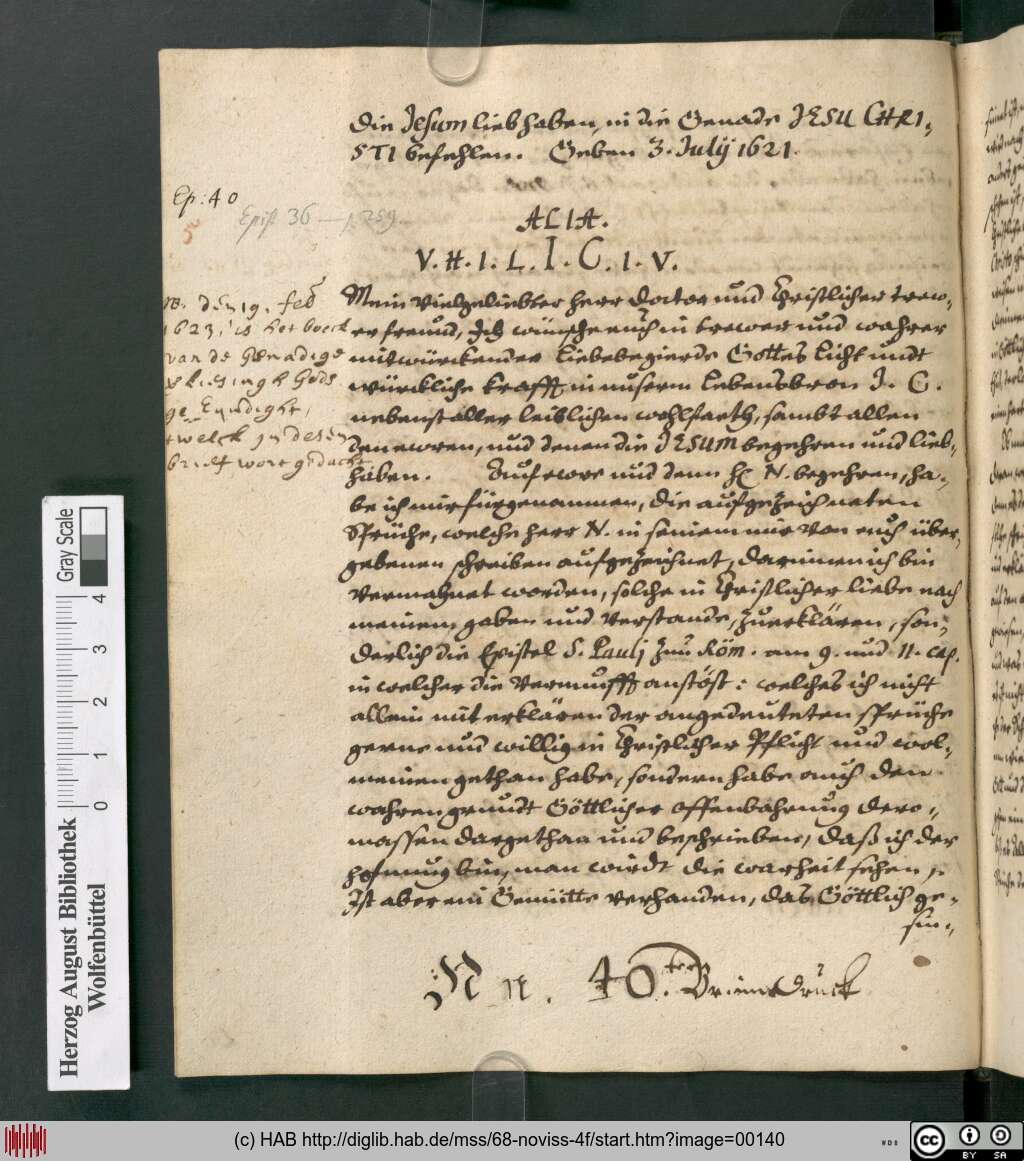 die Jesum liebhaben, in die Genade JESU CHRI-
STI befehlen. Geben 3. Julij 1621.
Ep: 40
Epist 36 — p. 259.
5
ALIA.
V. H. I. L. I. C. I. V.
den 19. feb
1623, is het boeck
van de Genadige
Gods
ge Eyndight,
twelck in desen
brieff wort gedacht
Mein vielgeliebter herr doctor und Christlicher trew-
er freund, Ich wünsche euch in trewer und wahrer
mitwürckender Liebebegierde Gottes licht undt
würckliche krafft in unserm Lebensbron J. C.
nebenst aller leiblichen wohlfarth, sambt allen
den ewren, und denen die JESUM begehren und lieb-
haben. Auf ewre und denn H. N. begehren, ha-
be ich mir fürgenommen, die aufgezeichneten
Sprüche, welche herr N. in seinem mir von euch über-
gebenen schreiben aufgezeichnet, darinnen ich bin
vermahnet worden, solche in Christlicher liebe nach
meinem gaben und verstande, zuerklären, son-
derlich die Epistel S. Paulj zun Röm. am 9. und 11. cap.
in welcher die vernunfft anstöst: welches ich nicht
allein mit erklären der angedeuteten sprüche
gerne und willig in Christlicher Pflicht und wol-
meinen gethan habe, sondern habe auch den
wahren grundt Göttlicher offenbahrung dero-
massen dargethan und beschrieben, daß ich der
hofnung bin, man wirdt die warheit sehen,
Ist aber ein Gemütte verhanden, das Göttlich ge-
sin-
N 40. druck
Herzog August Bibliothek
Wolfenbüttel
Gray Scale
0 1 2 3 4
(c) HAB http://diglib.hab.de/mss/68-noviss-4f/start.htm?image=00140
WDB
cc BY SA